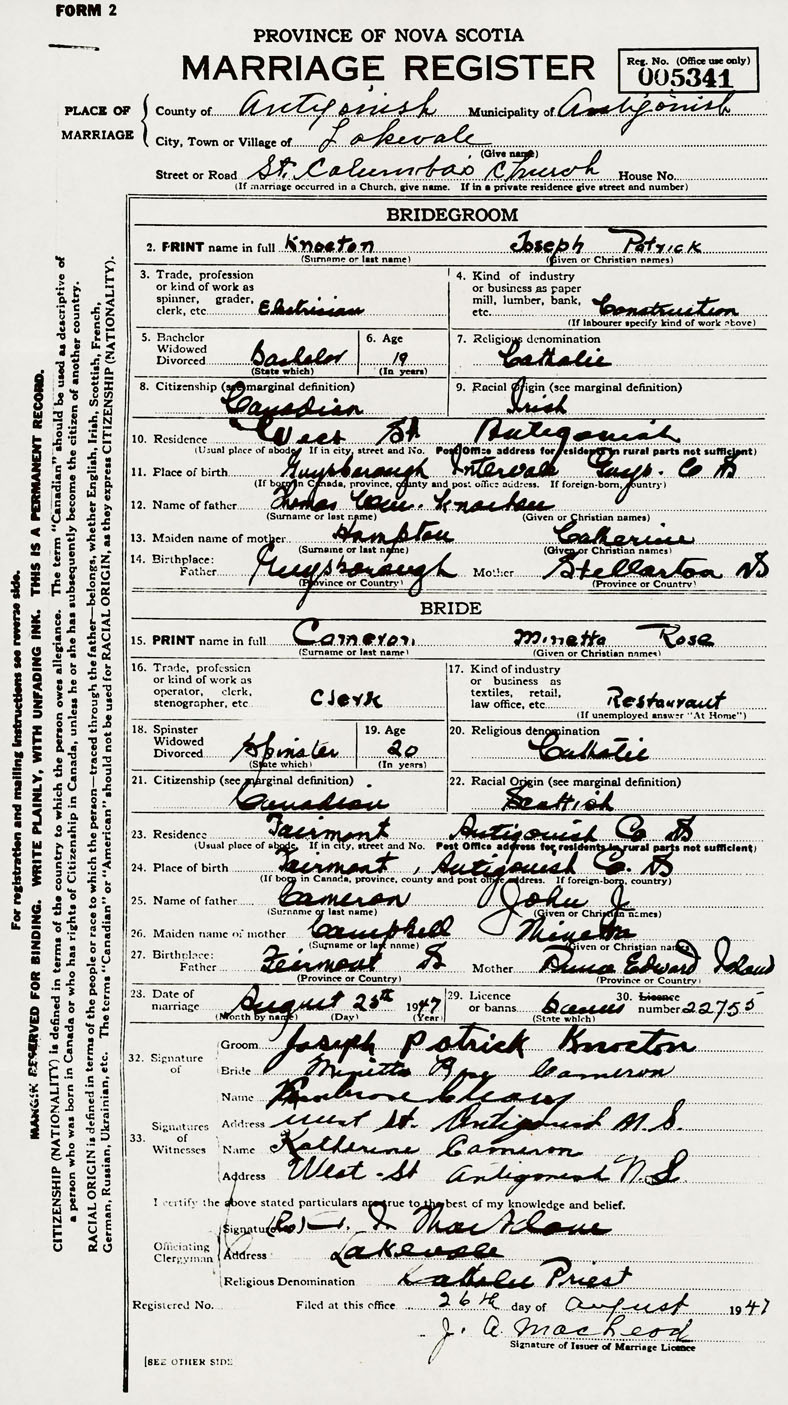 FORM 2
PROVINCE OF NOVA SCOTIA
MARRIAGE REGISTER
Reg. No. (Office use only)
005341
PLACE OF MARRIAGE
County of Antigonish Municipality of Antigonish
City, Town or Village of Lakevale
(Give name)
Street or Road St. Columba's Church House No.
(If marriage occurred in a Church, give name. If in a private residence give street and number)
BRIDEGROOM
2. PRINT name in full Knocton Joseph Patrick
(Surname or last name) (Given or Christian names)
3. Trade, profession or kind of work as spinner, grader, clerk, etc. Electrician
4. Kind of industry or business as paper mill, lumber, bank, etc. Construction
(If labourer specify kind of work above)
5. Bachelor Widowed Divorced Bachelor
(State which)
6. Age 19
(In years)
7. Religious denomination Catholic
8. Citizenship (see marginal definition) Canadian
9. Racial Origin (see marginal definition) Irish
10. Residence West St Antigonish
(Usual place of abode. If in city, street and No. Post Office address for residents in rural parts not sufficient)
11. Place of birth Guysborough Intervale Guys. Co NS
(If born in Canada, province, county and post office address. If foreign-born, country)
12. Name of father Thomas Knocton
(Surname or last name) (Given or Christian names)
13. Maiden name of mother Hampton Catherine
(Surname or last name) (Given or Christian names)
14. Birthplace: Father Guysborough Mother Stellarton NS
(Province or Country) (Province or Country)
BRIDE
15. PRINT name in full Cameron, Minetta Rose
(Surname or last name) (Given or Christian names)
16. Trade, profession or kind of work as operator, clerk, stenographer, etc Clerk
17. Kind of industry or business as textiles, retail, law office, etc. Restaurant
(If unemployed answer "At Home")
18. Spinster Widowed Divorced Spinster
(State which)
19. Age 20
(In years)
20. Religious denomination Catholic
21. Citizenship (see marginal definition) Canadian
22. Racial Origin (see marginal definition) Scottish
23. Residence Fairmont Antigonish Co NS
(Usual place of abode. If in city, street and No. Post Office address for residents in rural parts not sufficient)
24. Place of birth Fairmont, Antigonish Co. NS
(If born in Canada, province, county and post office address. If foreign-born, country)
25. Name of father Cameron John J
(Surname or last name) (Given or Christian names)
26. Maiden name of mother Campbell Minetta
(Surname or last name) (Given or Christian names)
27. Birthplace: Father Fairmont NS Mother Prince Edward Island
(Province or Country) (Province or Country)
28. Date of marriage August 25th 1947
(Month by name) (Day) (Year)
29. Licence or banns banns
(State which)
30. Licence number 22755
32. Signature of
Groom Joseph Patrick Knocton
Bride Minetta Rose Cameron
33. Signatures of Witnesses
Name Ambrose Cleary
Address West St. Antigonish N.S.
Name Katherine Cameron
Address West-St Antigonish N.S
I certify the above stated particulars are true to the best of my knowledge and belief.
Officiating Clergyman
Signature
Address Lakevale
Religious Denomination Catholic Priest
Registered No. Filed at this office 26th day of August 1947
J. A. MacLeod
Signature of Issuer of Marriage Licence
[SEE OTHER SIDE
For registration and mailing instructions see reverse side.
MARGIN RESERVED FOR BINDING. WRITE PLAINLY, WITH UNFADING INK. THIS IS A PERMANENT RECORD.
CITIZENSHIP (NATIONALITY) is defined in terms of the country to which the person owes allegiance. The term "Canadian" should be used as descriptive of
a person who was born in Canada or who has rights of Citizenship in Canada, unless he or she has subsequently become the citizen of another country.
RACIAL ORIGIN is defined in terms of the people or race to which the person—traced through the father—belongs, whether English, Irish, Scottish, French,
German, Russian, Ukrainian, etc. The terms "Canadian" or "American" should not be used for RACIAL ORIGIN, as they express CITIZENSHIP (NATIONALITY).